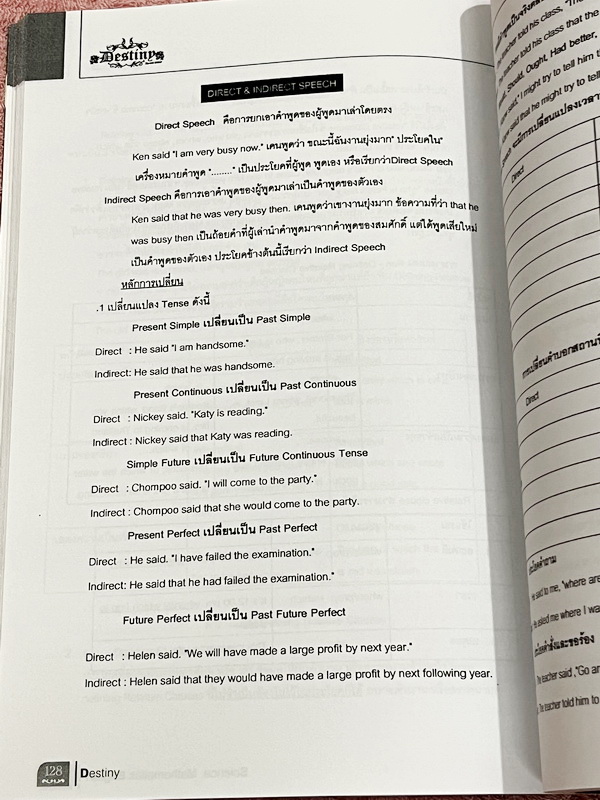 Destiny
DIRECT & INDIRECT SPEECH
Direct Speech คือการยกเอาคำพูดของผู้พูดมาเล่าโดยตรง
Ken said "I am very busy now." เคนพูดว่า ขณะนี้ฉันงานยุ่งมาก" ประโยคใน"
เครื่องหมายคำพูด "........" เป็นประโยคที่ผู้พูด พูดเอง หรือเรียกว่าDirect Speech
Indirect Speech คือการเอาคำพูดของผู้พูดมาเล่าเป็นคำพูดของตัวเอง
Ken said that he was very busy then. เคนพูดว่าเขางานยุ่งมาก ข้อความที่ว่า that he
was busy then เป็นถ้อยคำที่ผู้เล่านำคำพูดมาจากคำพูดของสมศักดิ์ แต่ได้พูดเสียใหม่
เป็นคำพูดของตัวเอง ประโยคข้างต้นนี้เรียกว่า Indirect Speech
หลักการเปลี่ยน
.1 เปลี่ยนแปลง Tense ดังนี้
Present Simple เปลี่ยนเป็น Past Simple
Direct : He said "I am handsome."
Indirect: He said that he was handsome.
Present Continuous เปลี่ยนเป็น Past Continuous
Direct : Nickey said. "Katy is reading."
Indirect : Nickey said that Katy was reading.
Simple Future เปลี่ยนเป็น Future Continuous Tense
Direct : Chompoo said. "I will come to the party."
Indirect : Chompoo said that she would come to the party.
Present Perfect เปลี่ยนเป็น Past Perfect
Direct : He said. "I have failed the examination."
Indirect: He said that he had failed the examination."
Future Perfect เปลี่ยนเป็น Past Future Perfect
Direct : Helen said. "We will have made a large profit by next year."
Indirect : Helen said that they would have made a large profit by next following year.
128 Destiny
told his class, "Th
teacher told his class that the
Should, Ought, Had better,
said, "I might try to tell him t
said that he might try to tell
Direct
Direct
He said to me, "where are
He asked me where I wa
The teacher said ,"Go an
The teacher told him to